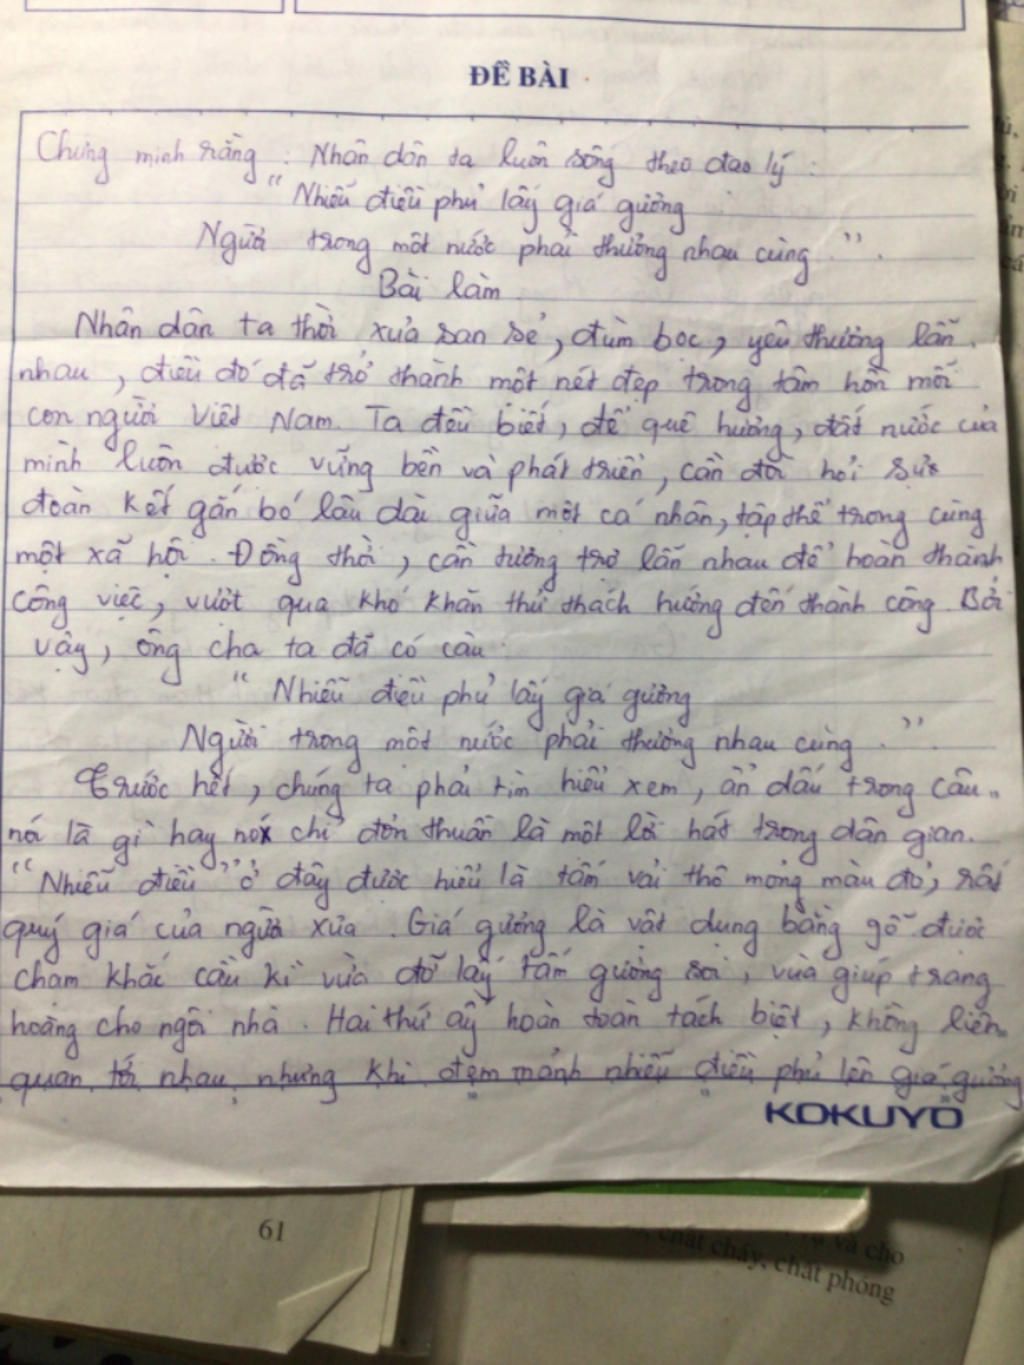 ĐỀ BÀI
Chứng minh rằng: Nhân dân ta luôn sống theo đạo lý:
“Nhiễu điều phủ lấy giá gương
Người trong một nước phải thương nhau cùng.”.
Bài làm
Nhân dân ta thời xưa san sẻ, đùm bọc, yêu thương lẫn
nhau, điều đó đã trở thành một nét đẹp trong tâm hồn mỗi
con người Việt Nam. Ta đều biết, để quê hương, đất nước của
mình luôn được vững bền và phát triển, cần đòi hỏi sự
đoàn kết gắn bó lâu dài giữa một cá nhân, tập thể trong cùng
một xã hội. Đồng thời, cần tương trợ lẫn nhau để hoàn thành
công việc, vượt qua khó khăn thử thách hướng đến thành công. Bởi
vậy, ông cha ta đã có câu:
“Nhiễu điều phủ lấy giá gương
Người trong một nước phải thương nhau cùng.”.
Trước hết, chúng ta phải tìm hiểu xem, ẩn dấu trong câu
nói là gì hay nó chỉ đơn thuần là một lời hát trong dân gian.
“Nhiễu điều” ở đây được hiểu là tấm vải thô mỏng màu đỏ, rất
quý giá của người xưa. Giá gương là vật dụng bằng gỗ được
chạm khắc cầu kì vừa đỡ lấy tấm gương soi, vừa giúp trang
hoàng cho ngôi nhà. Hai thứ ấy hoàn toàn tách biệt, không liên
quan tới nhau, nhưng khi đem mảnh nhiễu điều phủ lên giá gương
KOKUYO
61
và cho
chất cháy, chất phóng